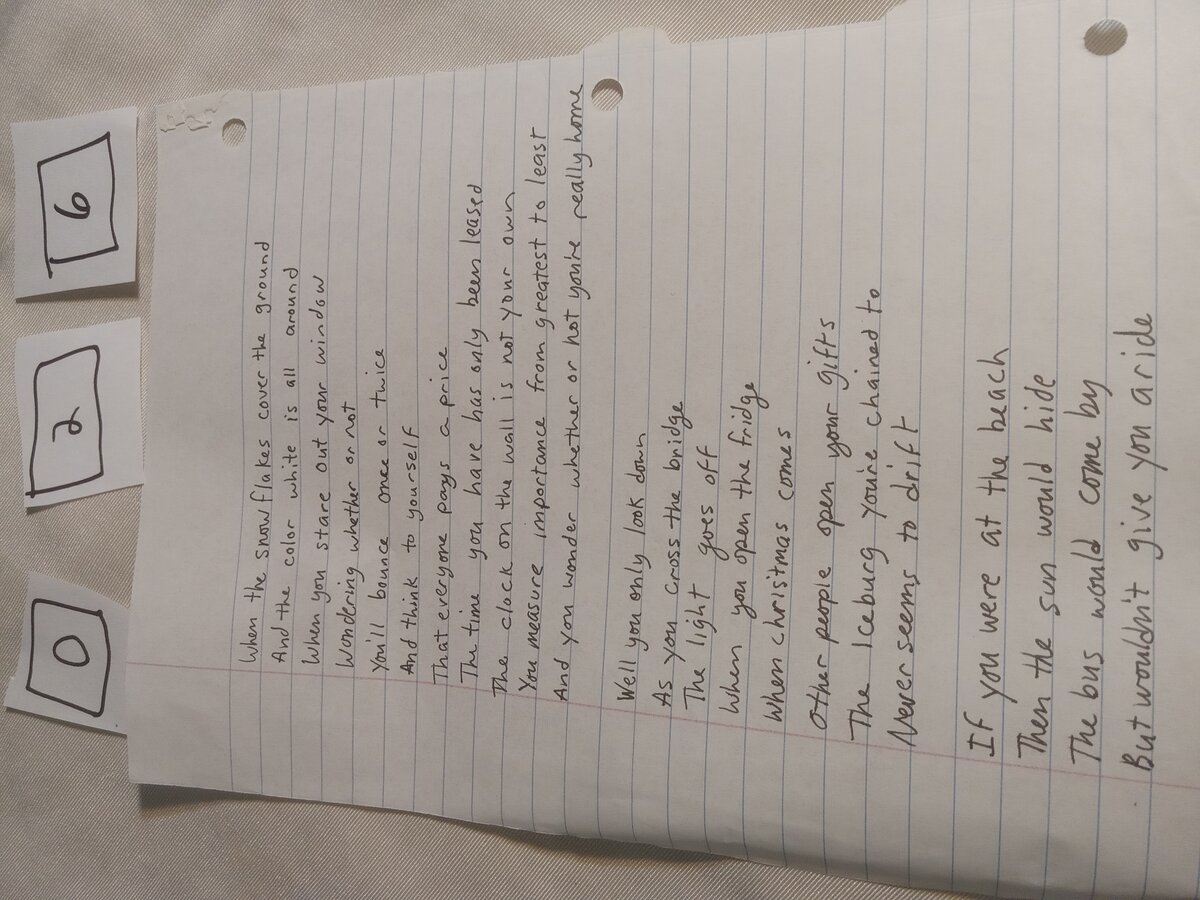 0 2 6
When the snowflakes cover the ground
And the color white is all around
When you stare out your window
Wondering whether or not
You'll bounce once or twice
And think to yourself
That everyone pays a price
The time you have has only been leased
The clock on the wall is not your own
You measure importance from greatest to least
And you wonder whether or not you're really home
Well you only look down
As you cross the bridge
The light goes off
When you open the fridge
When christmas comes
Other people open your gifts
The Iceburg you're chained to
Never seems to drift
If you were at the beach
Then the sun would hide
The bus would come by
But wouldn't give you a ride